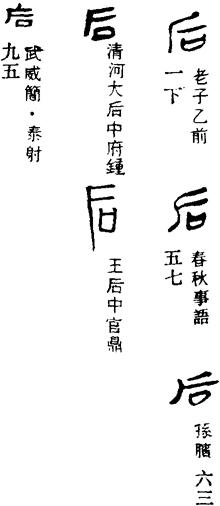 后
老子乙前
一下
后
春秋事語
五七
后
孫臏 六三
后
清河大后中府鍾
后
王后中官鼎
后
武威簡·泰射
九五